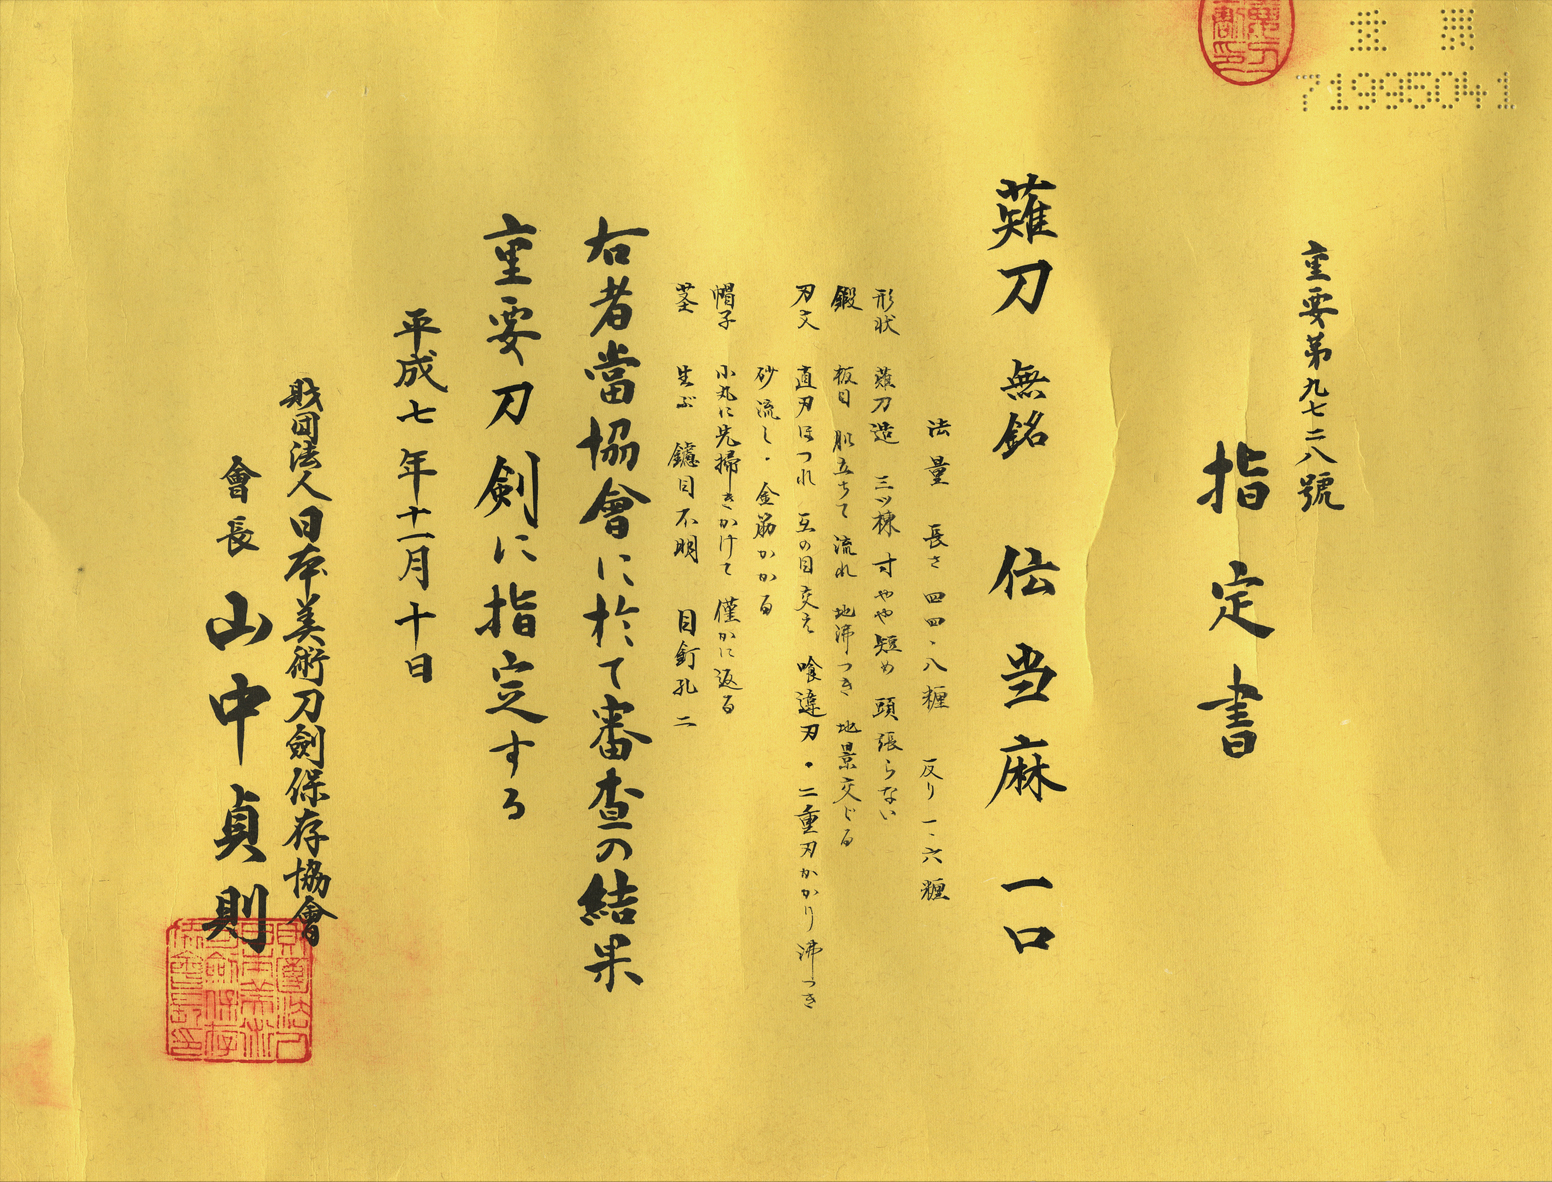 重要
71995041
重要第九七二八號
指定書
薙刀 無銘 伝当麻 一口
法量 長さ 四四・八糎 反り 一・六糎
形状 薙刀造 三ッ棟 寸やや短め 頭張らない
鍛 板目 肌立ちて 流れ 地沸つき 地景交じる
刃文 直刃ほつれ 互の目交え 喰違刃・二重刃かかり沸つき
砂流し・金筋かかる
帽子 小丸に先掃きかけて 僅かに返る
茎 生ぶ 鑢目不明 目釘孔二
右者當協會に於て審査の結果
重要刀剣に指定する
平成七年十一月十日
財団法人日本美術刀劍保存協會
會長 山中貞則